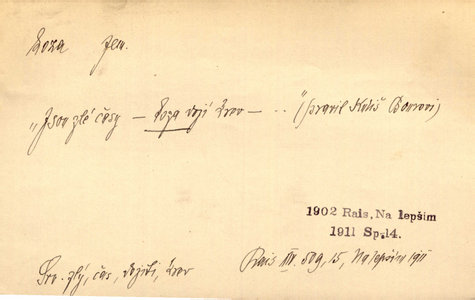 koza fem.
„Jsou zlé časy — koza dojí krev — .." (pravil Kubiš Bonrovi)
1902 Rais, Na lepším
1911 Sp.14.
Srv. zlý, čas, dojiti, krev
Rais III. 509, 15, Na lepším 1911